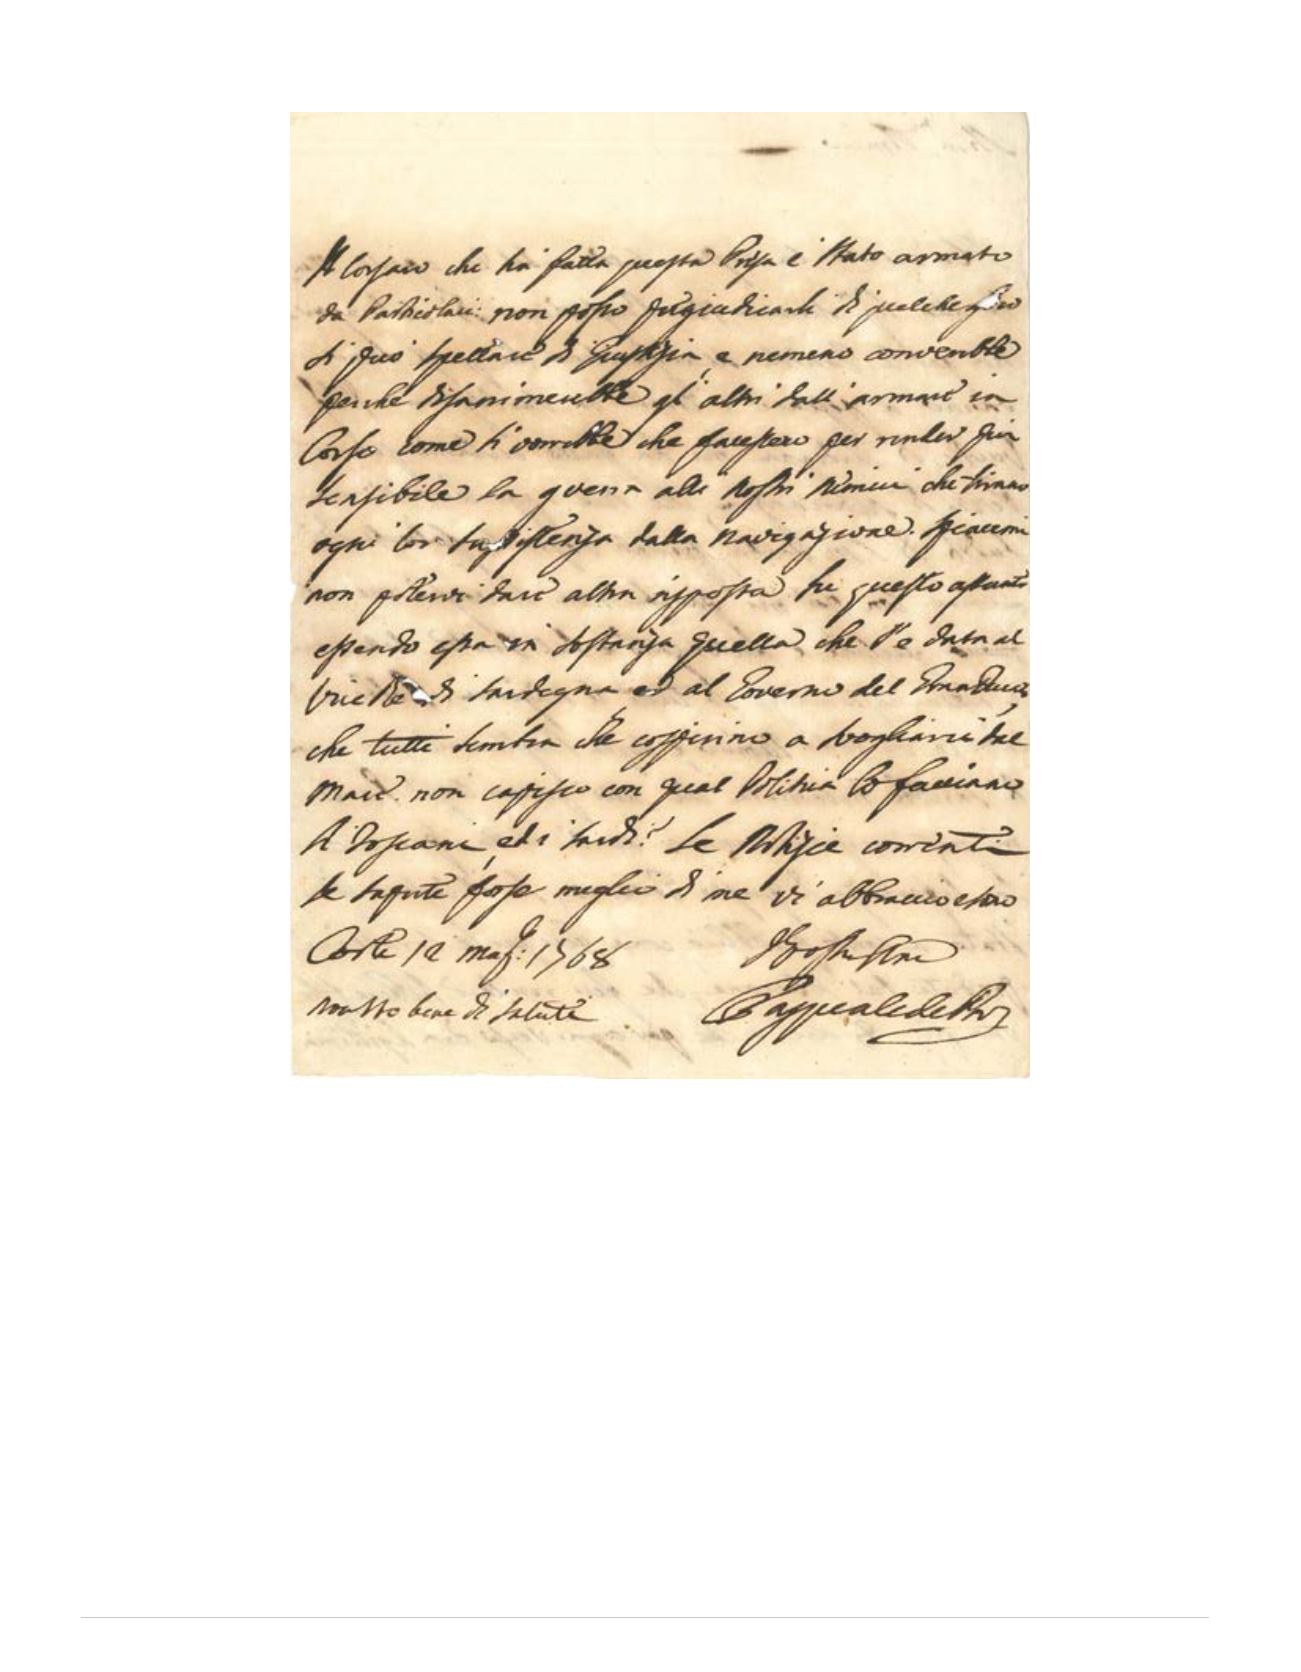 Il Corsaro che ha fatta questa Presa è stato armato
da Particolari: non posso pregiudicarli di quelche
li può spettare di Giustizia, e nemeno converrebbe
perche disanimerebbe gl'altri dall'armare in
Corso come si vorrebbe che facessero per render più
sensibile la guerra alli nostri Nimici che tirano
ogni lor sussistenza dalla Navigazione. Spiacemi
non potervi dare altra risposta su questo assunto
essendo essa in sostanza quella che s'è data al
Vice Re di Sardegna ed al Governo del Gran Duca,
che tutti sembra che cospirino a svogliarci dal
Mare. non capisco con qual Politica lo facciano
li Toscani, ed i Sardi? Le Notizie correnti
le sapute forse meglio di me vi abbraccio e sono
Corte 12 1768
non sto bene di salute Pasquale de Paoli